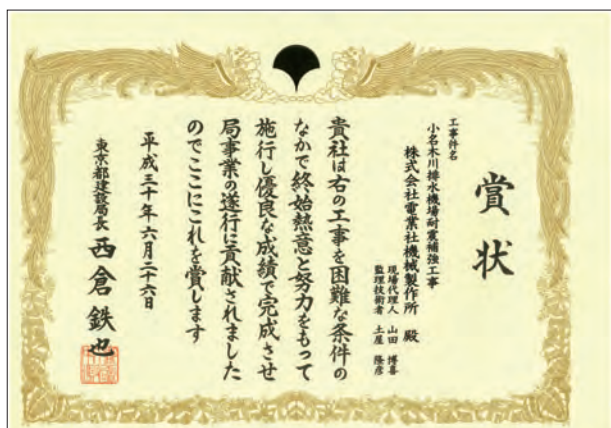 賞状
工事件名
小名木川排水機場耐震補強工事
株式会社電業社機械製作所 殿
現場代理人 山田 博喜
監理技術者 土屋 隆彦
貴社は右の工事を困難な条件の
なかで終始熱意と努力をもって
施行し優良な成績で完成させ
局事業の遂行に貢献されました
のでここにこれを賞します
平成三十年六月二十六日
東京都建設局長 西倉 鉄也